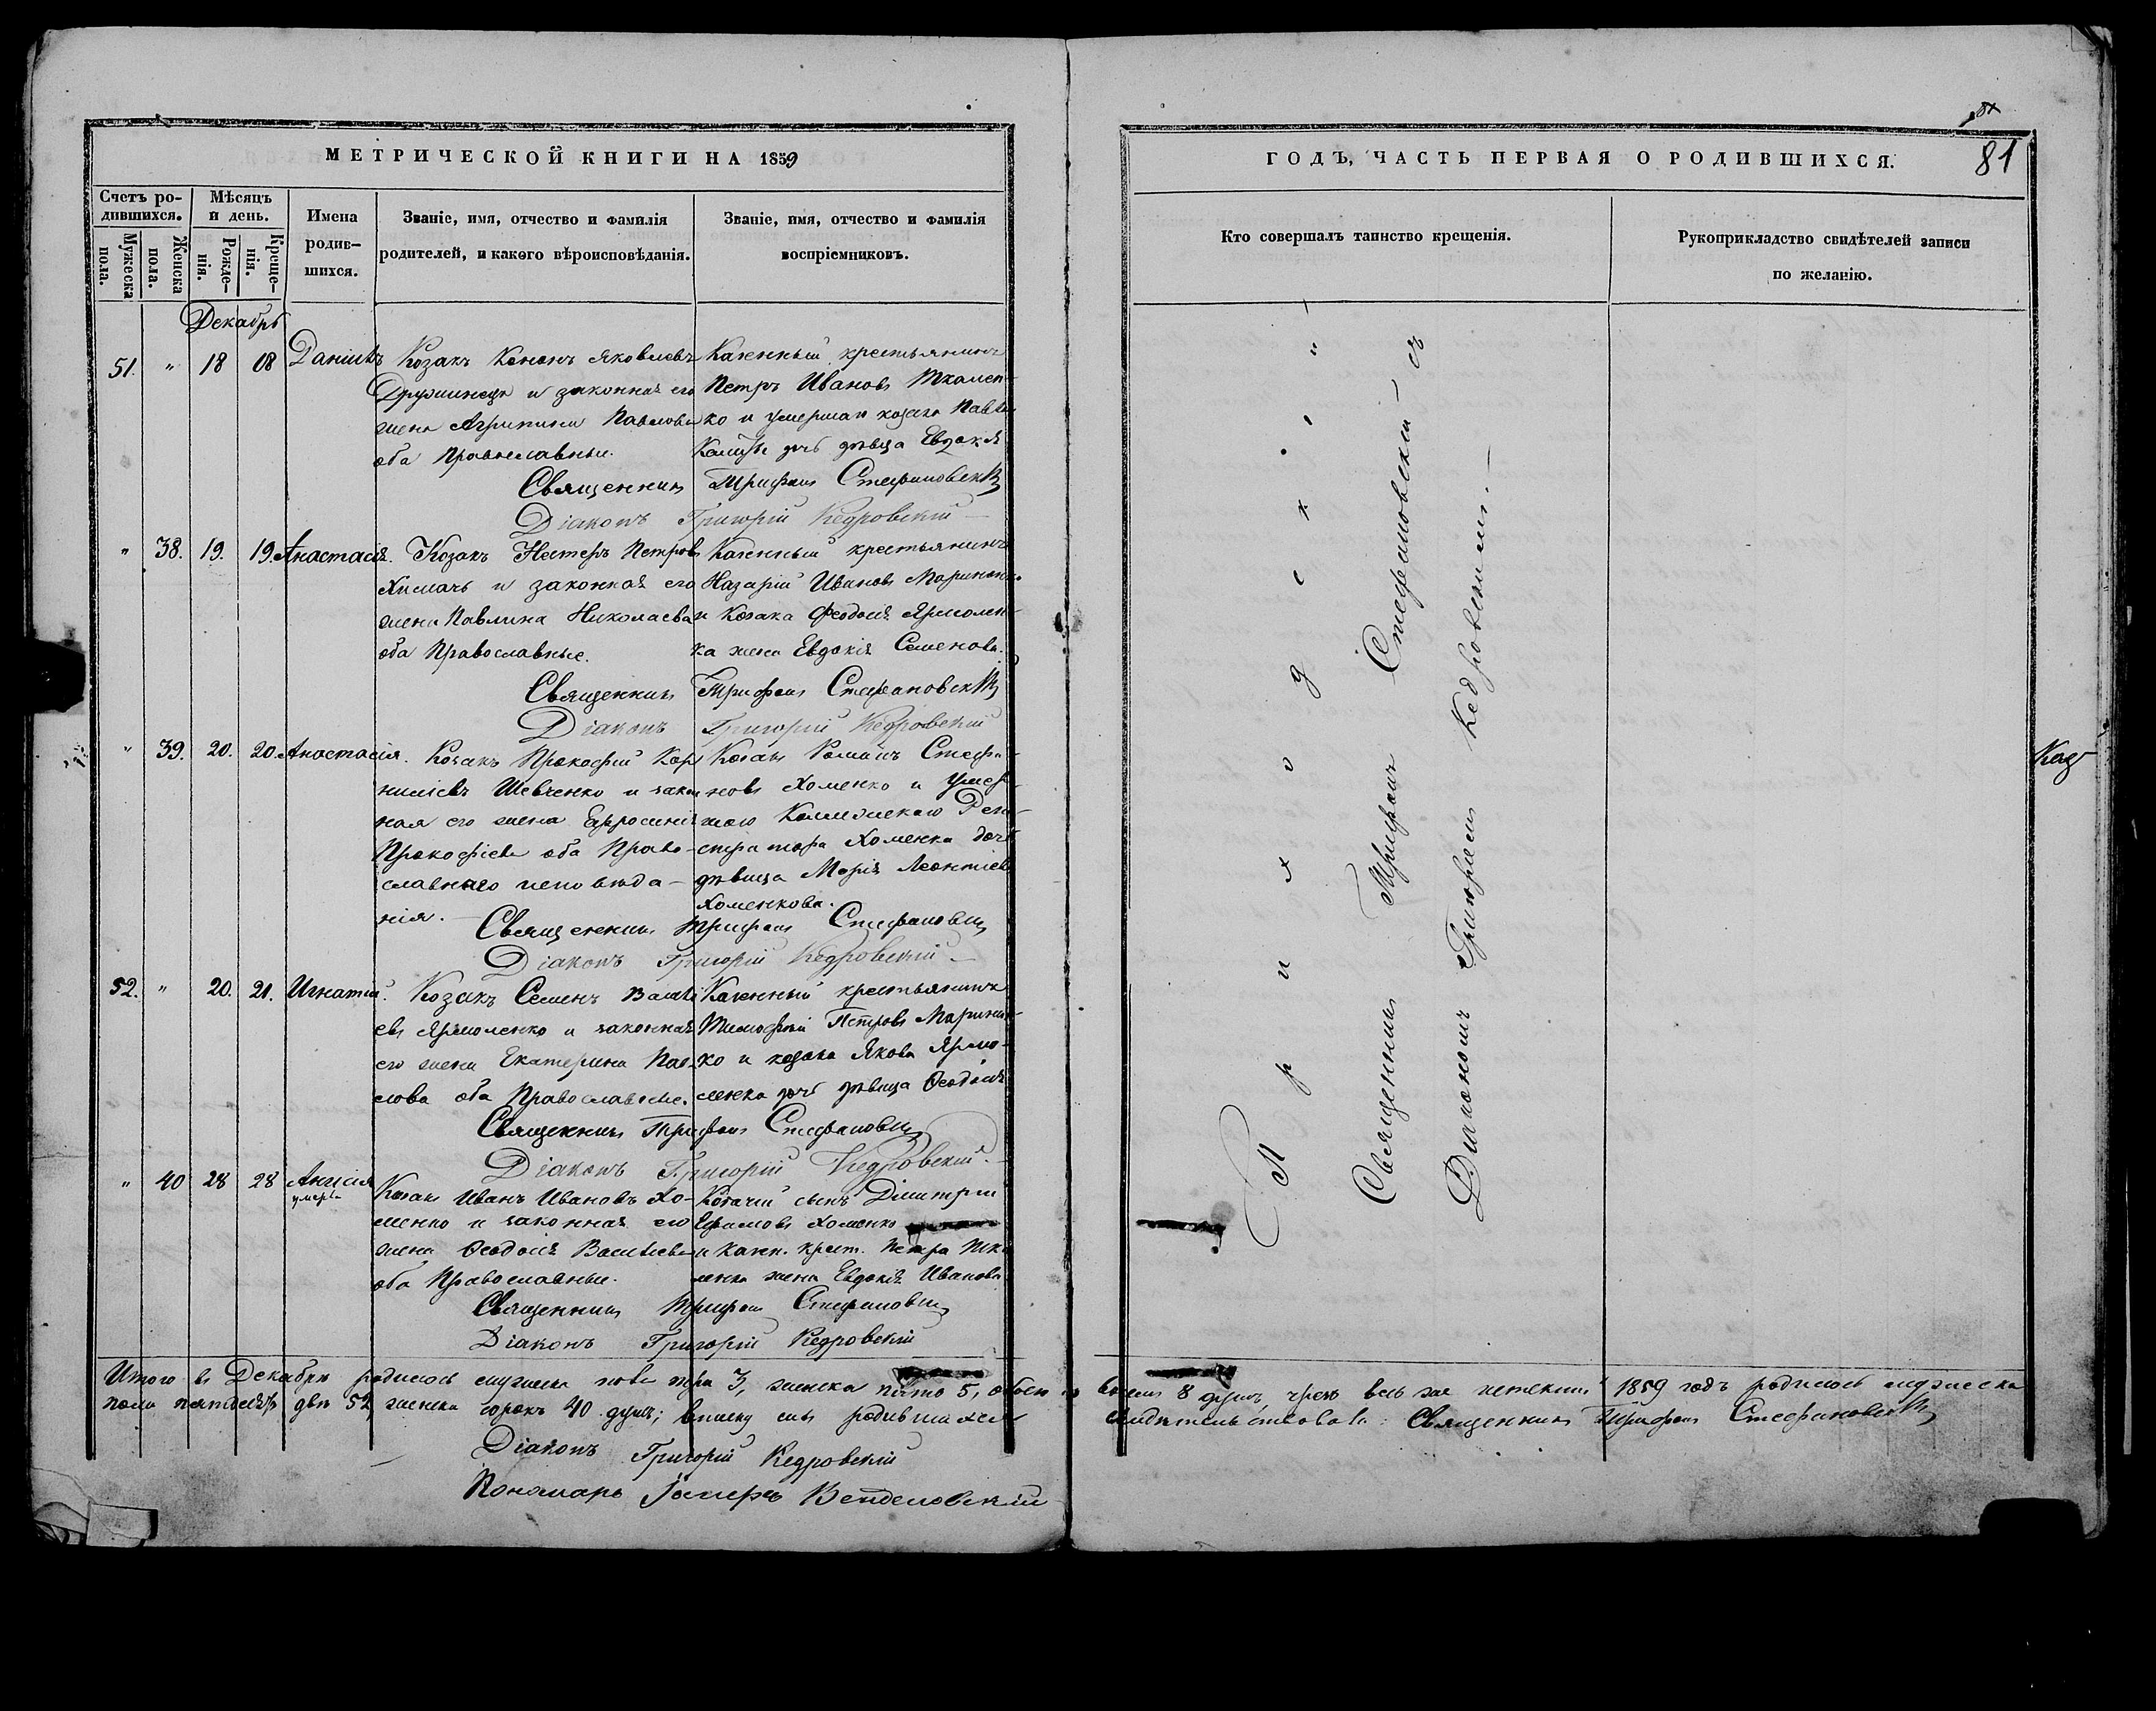 МЕТРИЧЕСКОЙ КНИГИ НА 1859
Счетъ ро-
дившихся.
Мужеска
пола.
Женска
пола.
Мѣсяцъ
и день.
Рожде-
нія.
Креще-
нія.
Имена
родив-
шихся.
Званіе, имя, отчество и фамилія
родителей, и какого вѣроисповѣданія.
Званіе, имя, отчество и фамилія
воспріемниковъ.
Декабрь
51. " 18 18 Даніилъ
Козакъ Кононъ Яковлевъ
и законная его
жена Агрипина Павлова
оба Православные.
Казенный крестьянинъ
Петръ Ивановъ Ткален-
ко и умершаго козака Павла
дочь дѣвица Евдокія
Священникъ Трифонъ Стефановскій
Діаконъ Григорій Кедровскій
" 38. 19. 19. Анастасія.
Козакъ Нестеръ Петровъ
Хималь и законная его
жена Павлина Николаева
оба Православные.
Казенный крестьянинъ
Назарій Ивановъ Маринен-
и Козака Феодосія Ярмолен-
ка жена Евдокія Семенова.
Священникъ Трифонъ Стефановскій
Діаконъ Григорій Кедровскій
" 39. 20. 20. Анастасія.
Козакъ Прокофій Кор-
ниліевъ Шевченко и закон
ная его жена Ефросинія
Прокофіева оба Право-
славнаго исповѣда-
нія.
Козакъ Романъ Стефа-
новъ Хоменко и умер-
шаго Коллежскаго Реги-
стратора Хоменка дочь
дѣвица Марія Леонтіева
Хоменкова.
Священникъ Трифонъ Стефановскій
Діаконъ Григорій Кедровскій
52. " 20. 21. Игнатій.
Козакъ Семенъ Василі
евъ Ярмоленко и законная
его жена Екатерина Пав-
лова оба Православные.
Казенный крестьянинъ
Тимофей Петровъ Маринен-
ко и козака Якова Ярмо-
ленка дочь дѣвица Феодосія
Священникъ Трифонъ Стефановскій
Діаконъ Григорій Кедровскій
" 40 28 28 Анисія
умерла
Козакъ Иванъ Ивановъ Хо-
менко и законная его
жена Феодосія Васильева
оба Православные.
Козачій сынъ Димитрій
Ефимовъ Хоменко
и казен. крест. Петра Тка
ленка жена Евдокія Иванова
Священникъ Трифонъ Стефановскій
Діаконъ Григорій Кедровскій
Итого въ Декабрѣ родилось мужеска пола три 3, женска пять 5, обоего
пола пятдесятъ двѣ 52, женска сорокъ 40 душъ; вписку сихъ родившихся
Діаконъ Григорій Кедровскій
Пономарь
81
ГОДЪ, ЧАСТЬ ПЕРВАЯ О РОДИВШИХСЯ.
Кто совершалъ таинство крещенія.
Рукоприкладство свидѣтелей записи
по желанію.
Приходскій
Священникъ Трифонъ Стефановскій съ
Діакономъ Григоріемъ Кедровскимъ.
8 душъ, чрезъ весь же истекшій 1859 годъ родилось мужеска
свидѣтельствовалъ: Священникъ Трифонъ Стефановскій